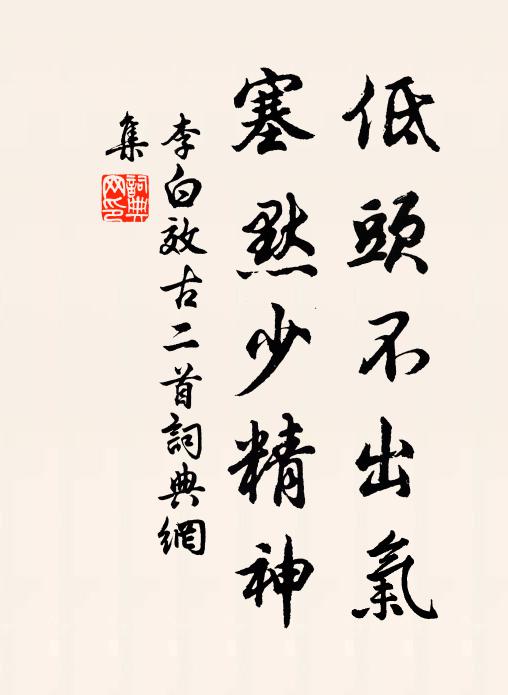 低頭不出氣
塞默少精神
李白效古二首詞典網
集
詞典
网印